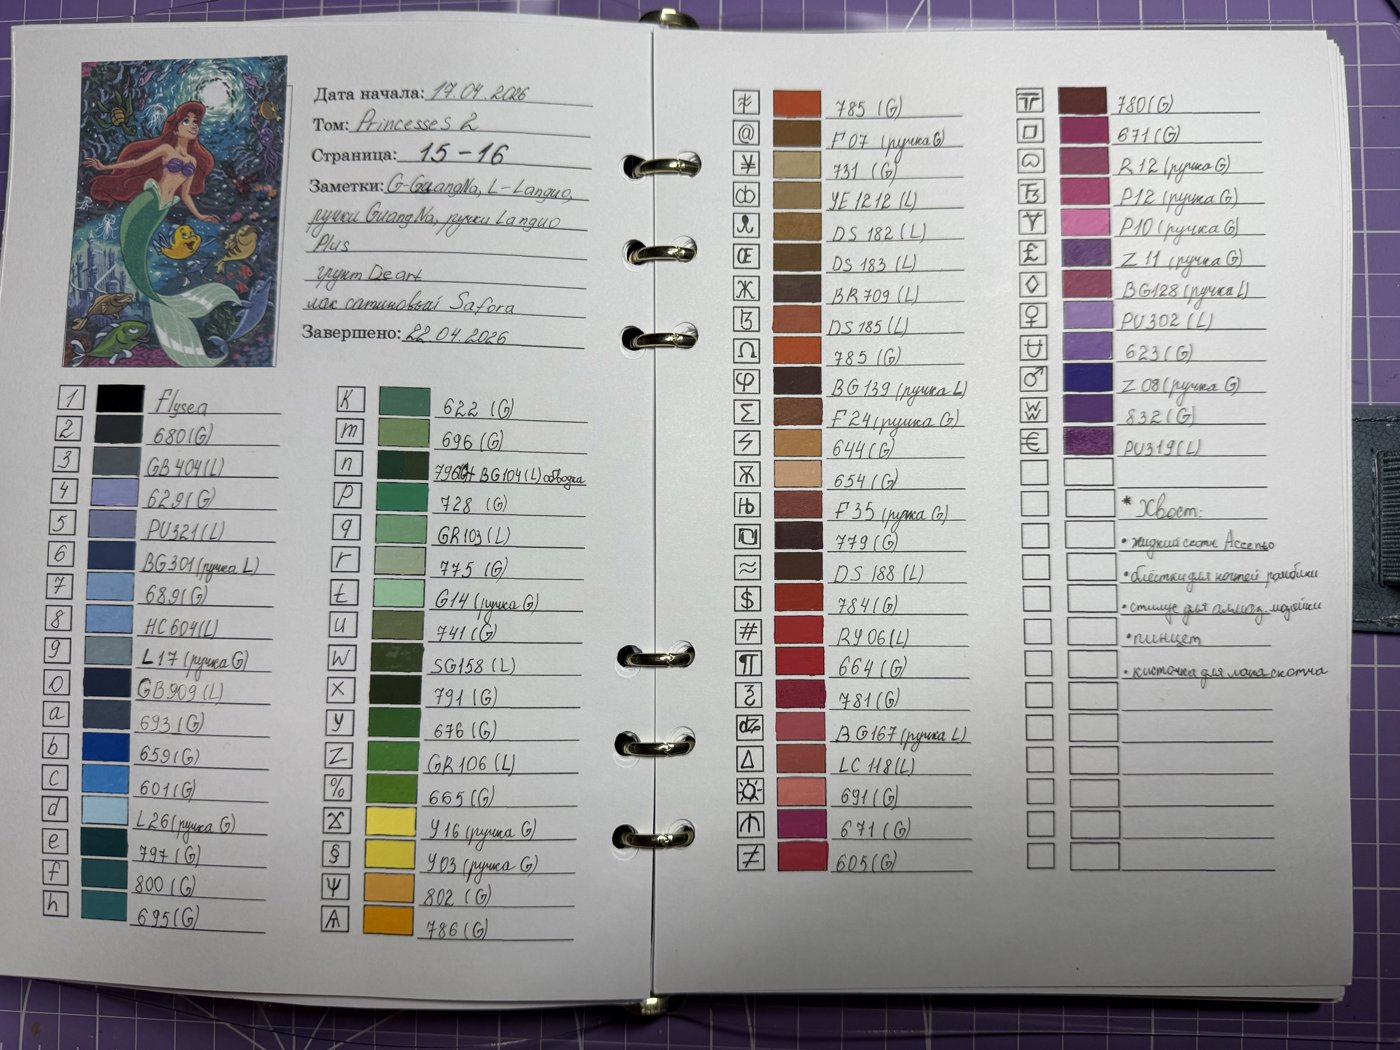 Дата начала: 17.04.2026
Том: Princesses 2
Страница: 15-16
Заметки: G-GuangNa, L-Languo,
ручки GuangNa, ручки Languo
Plus
грунт Deart
лак сатиновый Safora
Завершено: 22.04.2026
1 Flysea
2 680(G)
3 GB404(L)
4 629(G)
5 PU321(L)
6 BG301(ручка L)
7 689(G)
8 HC604(L)
9 L17(ручка G)
0 GB909(L)
a 693(G)
b 659(G)
c 601(G)
d L26(ручка G)
e 797(G)
f 800(G)
h 695(G)
K 622 (G)
m 696 (G)
n 796(G)+BG104(L) обводка
p 728 (G)
q GR103(L)
r 775(G)
t G14(ручка G)
u 741(G)
W SG158(L)
X 791(G)
y 676(G)
Z GR106(L)
% 665(G)
Y16(ручка G)
§ Y03(ручка G)
Ψ 802 (G)
786(G)
785 (G)
@ F07 (ручка G)
¥ 731 (G)
ф YE1212(L)
DS 182(L)
Œ DS 183(L)
Ж BR709(L)
DS185(L)
Ω 785 (G)
φ BG139 (ручка L)
Σ F24(ручка G)
644(G)
Ѫ 654(G)
Њ F35(ручка G)
779(G)
≈ DS 188 (L)
$ 784(G)
# RY06(L)
¶ 664(G)
781(G)
BG167(ручка L)
Δ LC118(L)
691(G)
671(G)
≠ 605(G)
780(G)
671(G)
R12(ручка G)
P12(ручка G)
P10(ручка G)
£ Z11(ручка G)
◊ BG128(ручка L)
♀ PU302(L)
623(G)
♂ Z08(ручка G)
W 832(G)
€ PU319(L)
* Хвост:
• жидкий скотч Accento
• блёстки для ногтей ромбики
• стилус для алмаз. мозайки
• пинцет
• кисточка для лака-скотча